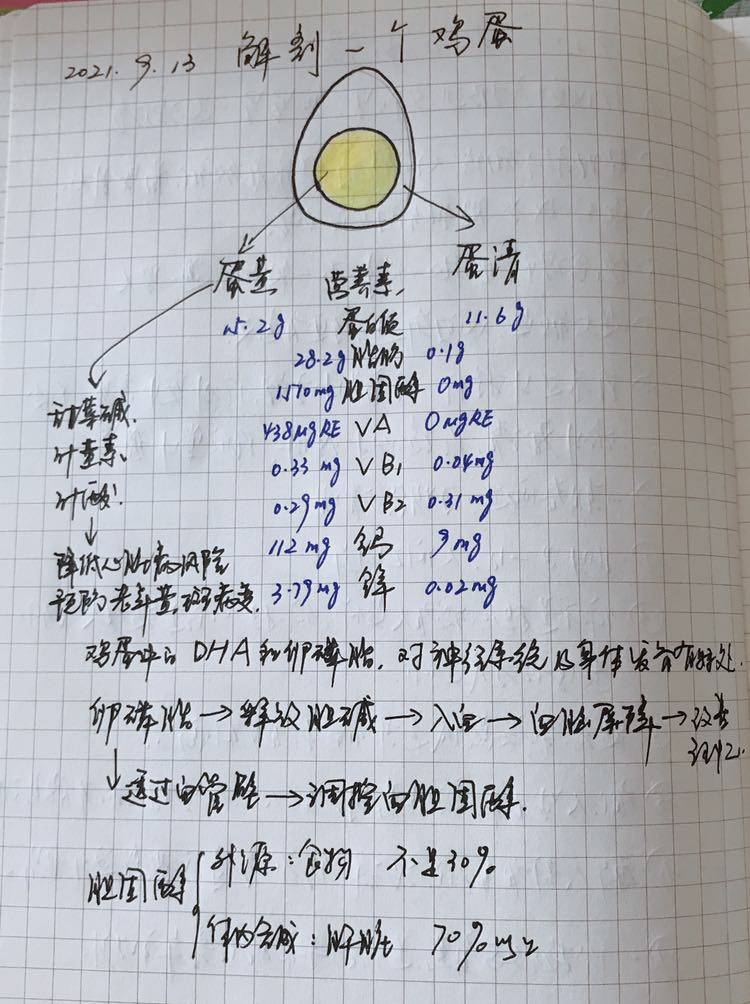 2021.9.13 解剖一个鸡蛋
蛋黄 营养素 蛋清
15.2g 蛋白质 11.6g
28.2g 脂肪 0.1g
1510mg 胆固醇 0mg
438μgRE VA 0μgRE
0.33mg VB1 0.04mg
0.29mg VB2 0.31mg
112mg 钙 9mg
3.79mg 锌 0.02mg
甜菜碱
叶黄素
叶酸
降低心脏病风险
预防老年黄斑病变
鸡蛋中的DHA和卵磷脂,对神经系统及身体发育有好处
卵磷脂→释放胆碱→入血→血脑屏障→改善
记忆
↓透过血管壁→调控血胆固醇.
胆固醇
外源:食物 不足30%
体内合成:肝脏 70%以上